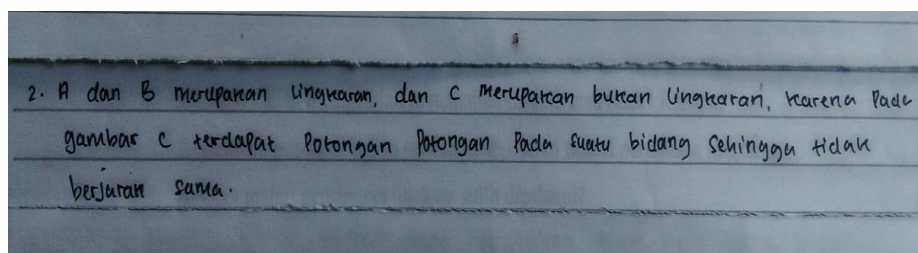 2. A dan B merupakan lingkaran, dan C merupakan bukan lingkaran, karena Pada
gambar C terdapat Potongan Potongan Pada suatu bidang Sehingga tidak
berjarak sama.